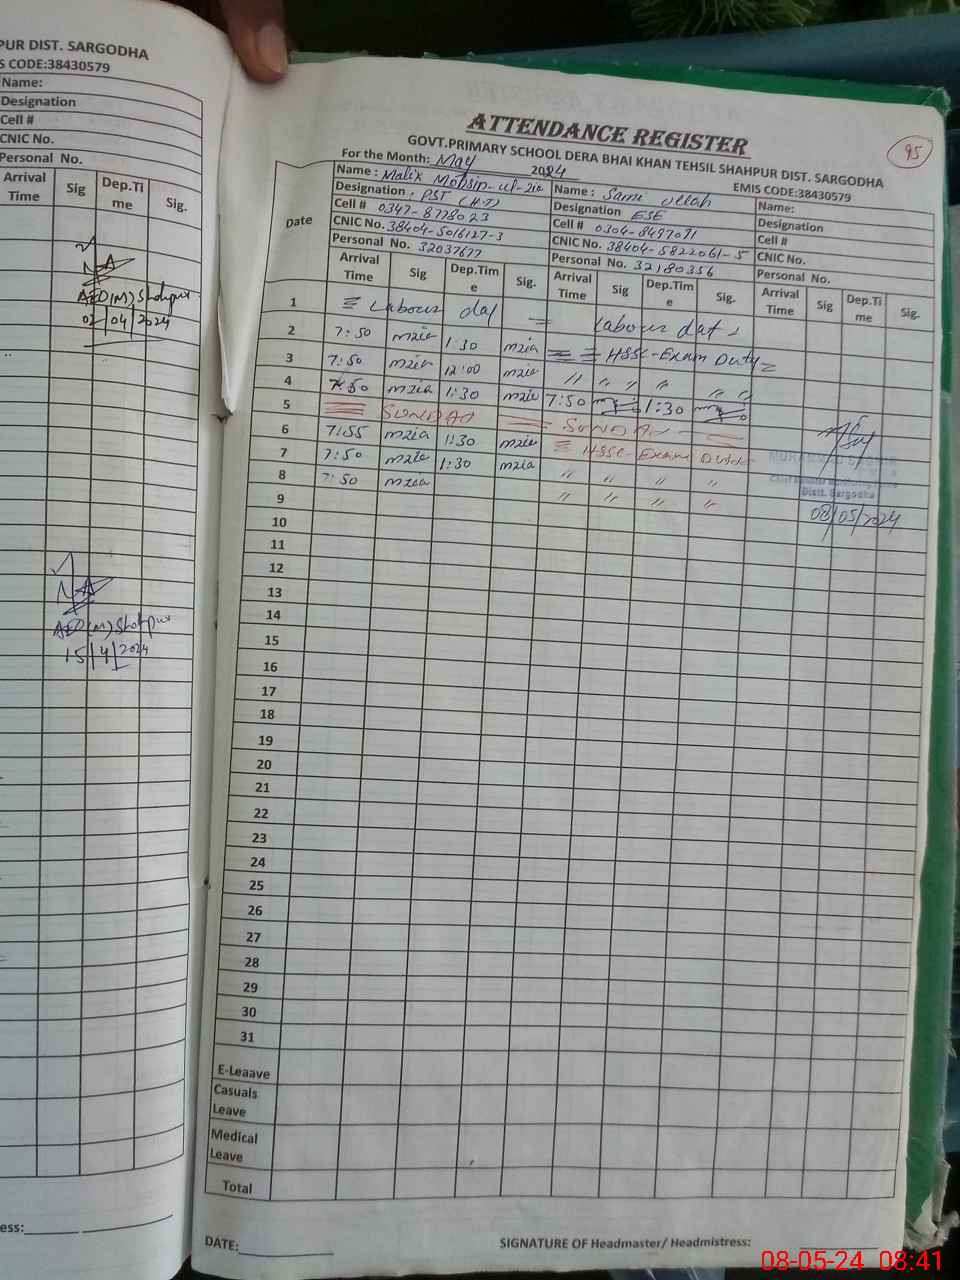 PUR DIST. SARGODHA
S CODE:38430579
Name:
Designation
Cell #
CNIC No.
Personal No.
Arrival Time Sig Dep.Ti me Sig.
AEO(M) Shahpur
02/04/2024
AEO(M) Shahpur
15/4/2024
ess:
ATTENDANCE REGISTER
95
GOVT.PRIMARY SCHOOL DERA BHAI KHAN TEHSIL SHAHPUR DIST. SARGODHA
For the Month: May 2024 EMIS CODE:38430579
Date
Name : Malik Mohsin-ul-zia Name : Sami ullah Name:
Designation . PST (H.T) Designation ESE Designation
Cell # 0347-8728023 Cell # 0304-8497091 Cell #
CNIC No. 38404-5016127-3 CNIC No. 38404-5822061-5 CNIC No.
Personal No. 32037677 Personal No. 32180356 Personal No.
Arrival Time Sig Dep.Tim e Sig. Arrival Time Sig Dep.Tim e Sig. Arrival Time Sig Dep.Ti me Sig.
1 = Labour day = Labour day
2 7:50 mzia 1:30 mzia = = HSSC-Exam Duty =
3 7:50 mzia 12:00 mzia // // // // // //
4 7:50 mzia 1:30 mzia 7:50 1:30
5 SUNDAY SUNDAY
6 7:55 mzia 1:30 mzia = HSSC-Exam Duty
7 7:50 mzia 1:30 mzia // // // //
8 7:50 mzia // // // //
9
Distt. Sargodha
08/05/2024
10
11
12
13
14
15
16
17
18
19
20
21
22
23
24
25
26
27
28
29
30
31
E-Leaave
Casuals Leave
Medical Leave
Total
DATE: SIGNATURE OF Headmaster/ Headmistress:
08-05-24 08:41